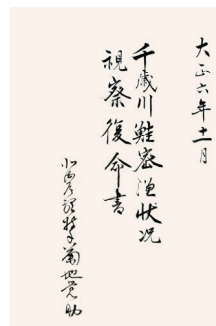 大正六年十一月
千歳川鮭密漁状況
視察復命書
菊地覚助